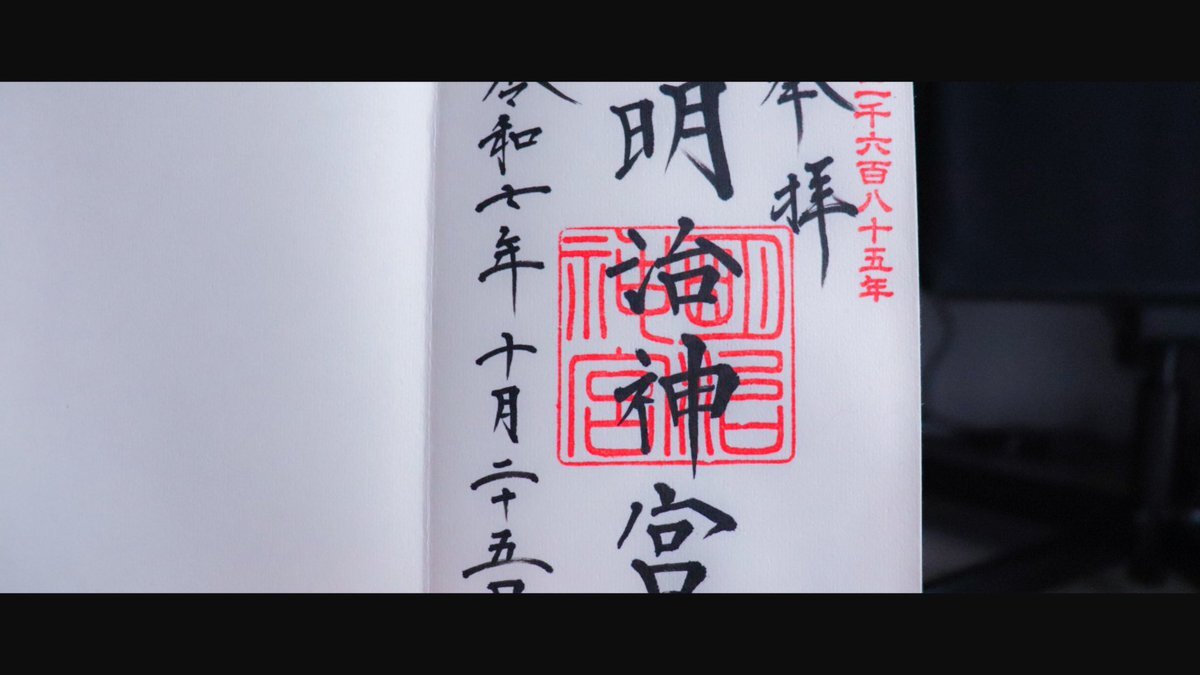 二千六百八十五年
奉拝
明治神宮
明治神宮
令和七年十月二十五日